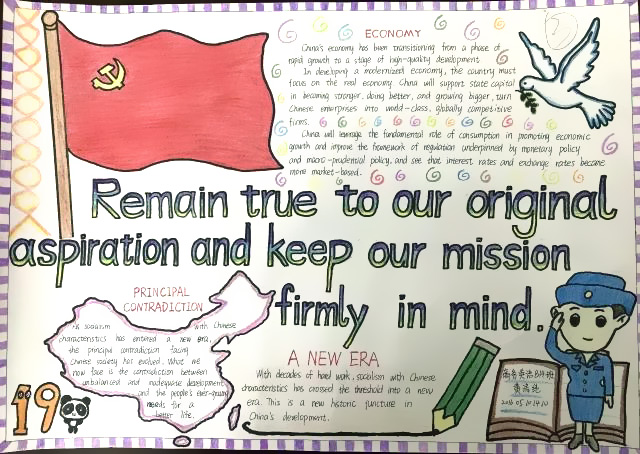 ECONOMY
China's economy has been transitioning from a phase of
rapid growth to a stage of high-quality development
In developing a modernized economy, the country must
focus on the real economy. China will support state capital
in becoming stronger, doing better, and growing bigger, turn
Chinese enterprises into world-class, globally competitive
firms.
China will leverage the fundamental role of consumption in promoting economic
growth and improve the framework of regulation underpinned by monetary policy
and macro-prudential policy, and see that interest rates and exchange rates became
more market-based.
Remain true to our original
aspiration and keep our mission
firmly in mind.
PRINCIPAL
CONTRADICTION
As socialism with Chinese
characteristics has entered a new era,
the principal contradiction facing
Chinese society has evolved. What we
now face is the contradiction between
unbalanced and inadequate development
and the people's ever-growing
needs for a
better life.
A NEW ERA
With decades of hard work, socialism with Chinese
characteristics has crossed the threshold into a new
era. This is a new historic juncture in
China's development.
19